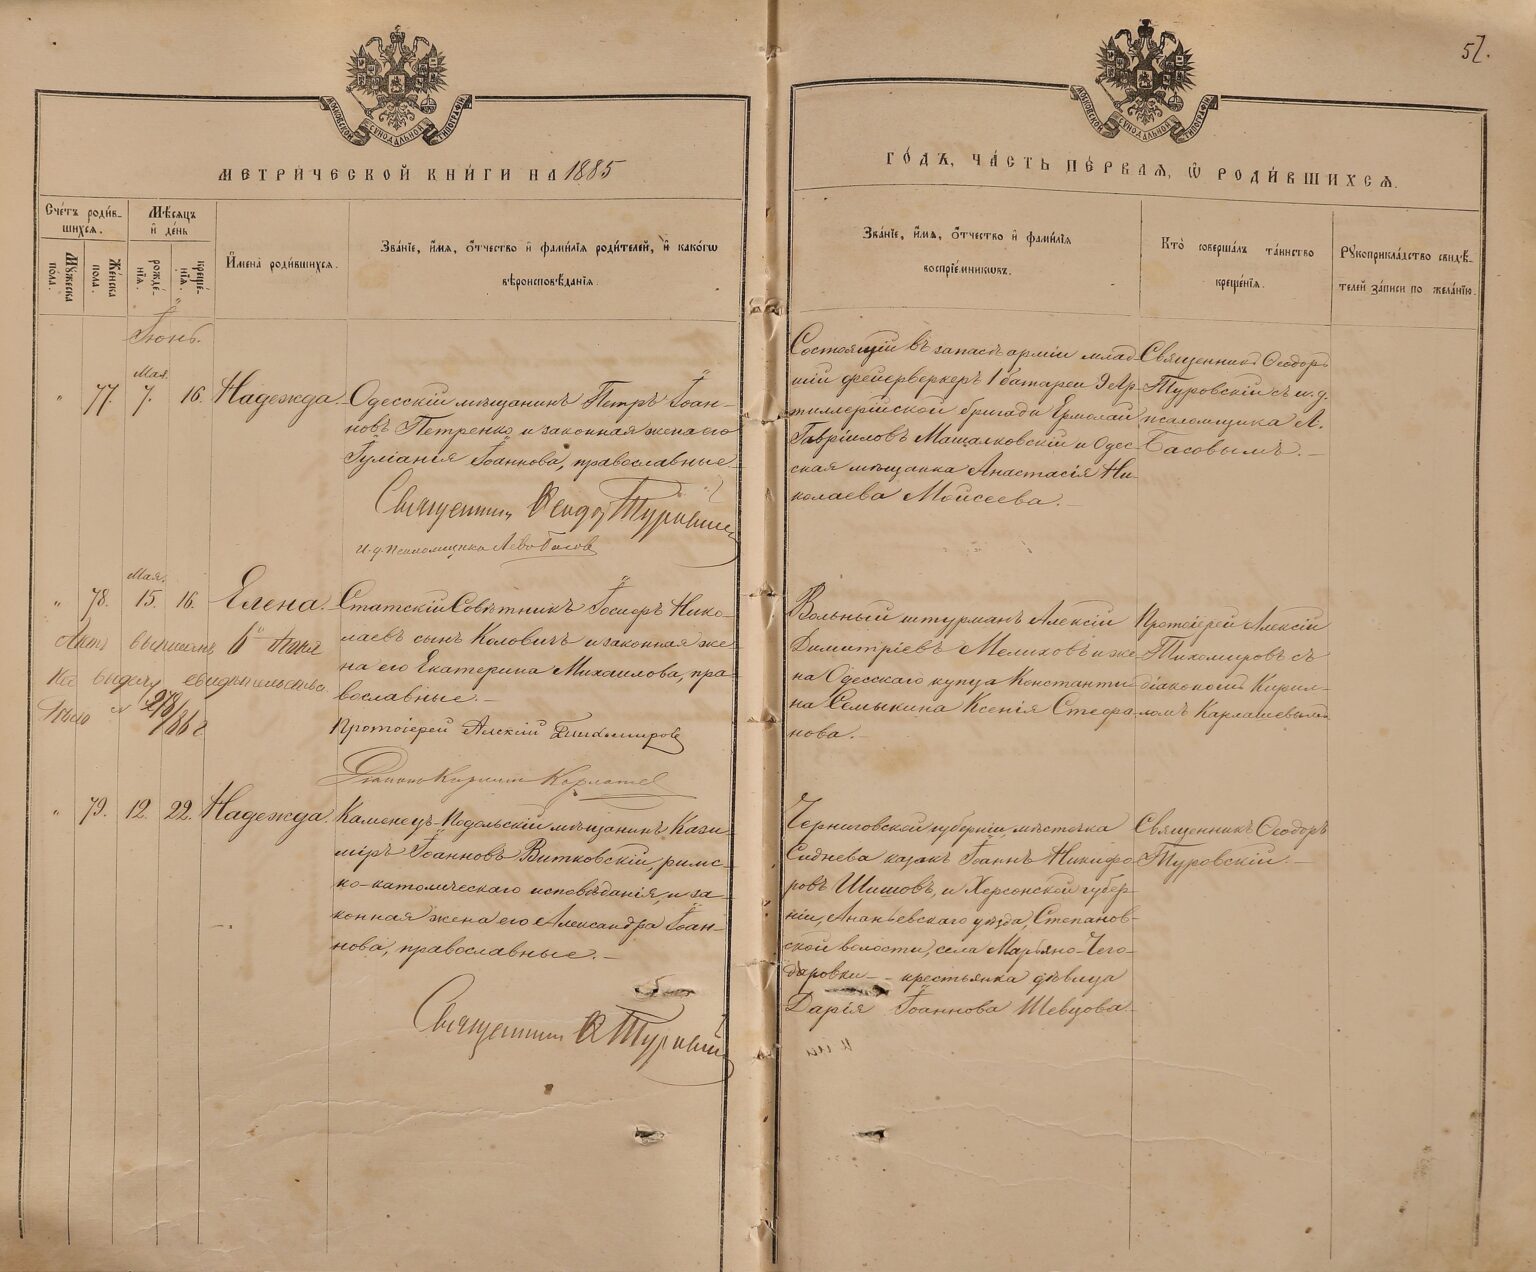 57.
МОСКОВСКОЙ СѴНОДАЛЬНОЙ ТИПОГРАФІИ
МОСКОВСКОЙ СѴНОДАЛЬНОЙ ТИПОГРАФІИ
МЕТРИ́ЧЕСКОЙ КНИ́ГИ НА 1885
ГО́ДЪ, ЧА́СТЬ ПЕ́РВАЯ, Ѡ РОДИ́ВШИХСЯ.
Сче́тъ роди́в-
шихся.
Мꙋ́жеска
по́ла.
Же́нска
пола.
Мѣ́сяцъ
и҆ де́нь
рожде́-
нїя.
креще́-
нїя.
И҆мена̀ роди́вшихся.
Зва́нїе, и҆́мя, ѻ҆́тчество и҆ фами́лїя роди́телей, и҆ како́гѡ
вѣроисповѣ́данїя.
Зва́нїе, и҆́мя, ѻ҆́тчество и҆ фами́лїя
воспрїе́мникѡвъ.
Кто̀ соверша́лъ та́инство
креще́нїя.
Рꙋкоприкла́дство свидѣ́-
телей за́писи по жела́нїю.
Іюнь.
Мая.
" 77. 7. 16. Надежда. Одесскій мѣщанинъ Петръ Іоан-
новъ Петренко и законная жена его
Іуліанія Іоаннова, православные.
Священник Феодор Туровский
и. д. псаломщика Лев Басов
Состоящій въ запасѣ арміи млад-
шій фейерверкеръ 1 батареи 9 Ар-
тиллерійской бригады Ермолай
Гавріиловъ Мащалковскій и Одес-
ская мѣщанка Анастасія Ни-
колаева Моисеева.
Священникъ Ѳеодоръ
Туровскій съ и. д.
псаломщика Л.
Басовымъ.
Мая.
" 78. 15. 16. Елена. Статскій Совѣтникъ Іосифъ Нико-
лаевъ сынъ Коловичъ и законная же-
на его Екатерина Михаилова, пра-
вославные.
Протоіерей Алексій Тихомиров
Діаконъ Кирилл Карлашев
выдачу свидѣтельства
Вольный штурманъ Алексій
Димитріевъ Мелиховъ и же-
на Одесскаго купца Константи-
на Семыкина Ксенія Стефа-
нова.
Протоіерей Алексій
Тихомировъ съ
діакономъ Кирил-
ломъ Карлашевымъ
" 79. 12. 22. Надежда. Каменецъ-Подольскій мѣщанинъ Кази-
міръ Іоанновъ Витковскій, римс-
ко-католическаго исповѣданія, и за-
конная жена его Александра Іоан-
нова, православные.
Священник Ѳ Туровский
Черниговской губерніи, мѣстечка
Седнева казак Іоаннъ Никифо-
ровъ Шишовъ, и Херсонской губер-
ніи, Ананьевскаго уѣзда, Степанов-
ской волости, села Марьяно-Чего-
даровки - крестьянка дѣвица
Дарія Іоаннова Шевцова.
Священникъ Ѳеодоръ
Туровскій.